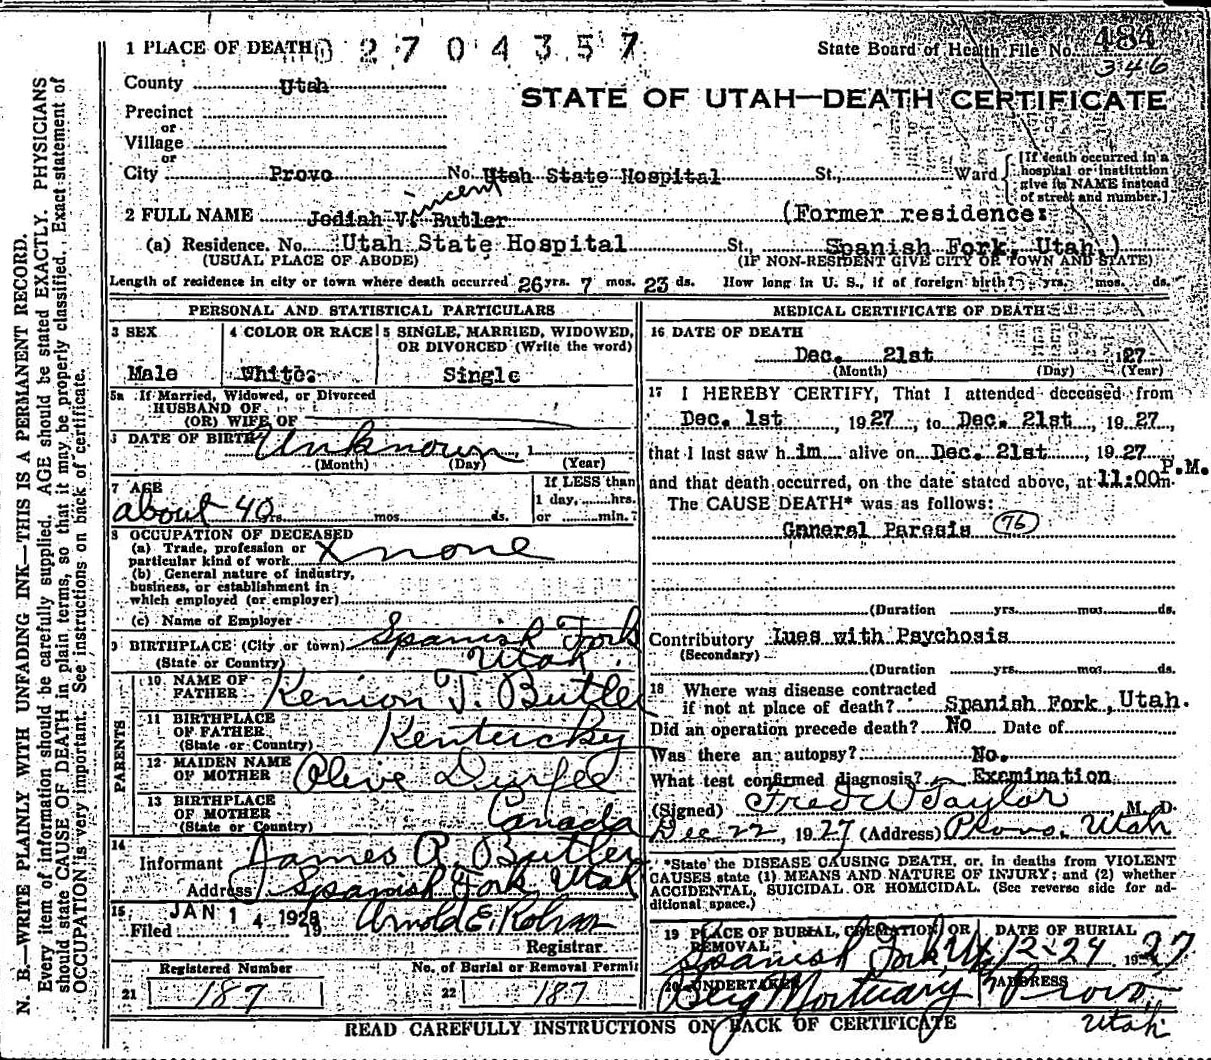 N. B.—WRITE PLAINLY WITH UNFADING INK—THIS IS A PERMANENT RECORD.
Every item of information should be carefully supplied. AGE should be stated EXACTLY. PHYSICIANS
should state CAUSE OF DEATH in plain terms, so that it may be properly classified. Exact statement of
OCCUPATION is very important. See instructions on back of certificate.
1 PLACE OF DEATH 0 2 7 0 4 3 5 7
State Board of Health File No. 484
346
County Utah
STATE OF UTAH—DEATH CERTIFICATE
Precinct
or
Village
or
City Provo No. Utah State Hospital St., Ward
[If death occurred in a
hospital or institution
give its NAME instead
of street and number.]
2 FULL NAME Jediah V. incent Butler (Former residence:
(a) Residence. No. Utah State Hospital St., Spanish Fork, Utah.)
(USUAL PLACE OF ABODE) (IF NON-RESIDENT GIVE CITY OR TOWN AND STATE)
Length of residence in city or town where death occurred 26 yrs. 7 mos. 23 ds. How long in U. S., if of foreign birth? yrs. mos. ds.
PERSONAL AND STATISTICAL PARTICULARS
3 SEX
Male
4 COLOR OR RACE
White.
5 SINGLE, MARRIED, WIDOWED,
OR DIVORCED (Write the word)
Single
5a If Married, Widowed, or Divorced
HUSBAND OF
(OR) WIFE OF
6 DATE OF BIRTH Unknown, 1
(Month) (Day) (Year)
7 AGE
about 40 yrs. mos. ds.
If LESS than
1 day, hrs.
or min.?
8 OCCUPATION OF DECEASED
(a) Trade, profession or
particular kind of work x none
(b) General nature of industry,
business, or establishment in
which employed (or employer)
(c) Name of Employer
9 BIRTHPLACE (City or town) Spanish Fork
(State or Country) Utah.
PARENTS
10 NAME OF
FATHER Kenion T. Butler
11 BIRTHPLACE
OF FATHER
(State or Country) Kentucky
12 MAIDEN NAME
OF MOTHER Olive Durfee
13 BIRTHPLACE
OF MOTHER
(State or Country) Canada
14
Informant James R. Butler
Address Spanish Fork, Utah
15
Filed JAN 14 1928 19 Arnold E.
Registrar
Registered Number
21 187
No. of Burial or Removal Permit
22 187
MEDICAL CERTIFICATE OF DEATH
16 DATE OF DEATH
Dec. 21st 1927
(Month) (Day) (Year)
17 I HEREBY CERTIFY, That I attended deceased from
Dec. 1st, 1927, to Dec. 21st, 1927,
that I last saw him alive on Dec. 21st, 1927,
and that death occurred, on the date stated above, at 11:00m. P.M.
The CAUSE DEATH* was as follows:
General Paresis (76)
(Duration yrs. mos. ds.
Contributory Lues with Psychosis
(Secondary)
(Duration yrs. mos. ds.
18 Where was disease contracted
if not at place of death? Spanish Fork, Utah.
Did an operation precede death? No Date of
Was there an autopsy? No.
What test confirmed diagnosis? Examination
(Signed) Fred W Taylor M. D.
Dec 22, 1927 (Address) Provo. Utah
*State the DISEASE CAUSING DEATH, or, in deaths from VIOLENT
CAUSES state (1) MEANS AND NATURE OF INJURY; and (2) whether
ACCIDENTAL, SUICIDAL OR HOMICIDAL. (See reverse side for ad-
ditional space.)
19 PLACE OF BURIAL, CREMATION, OR
REMOVAL
Spanish Fork, Ut.
DATE OF BURIAL
12-24 1927
20 UNDERTAKER
Berg Mortuary
ADDRESS
Provo,
Utah
READ CAREFULLY INSTRUCTIONS ON BACK OF CERTIFICATE